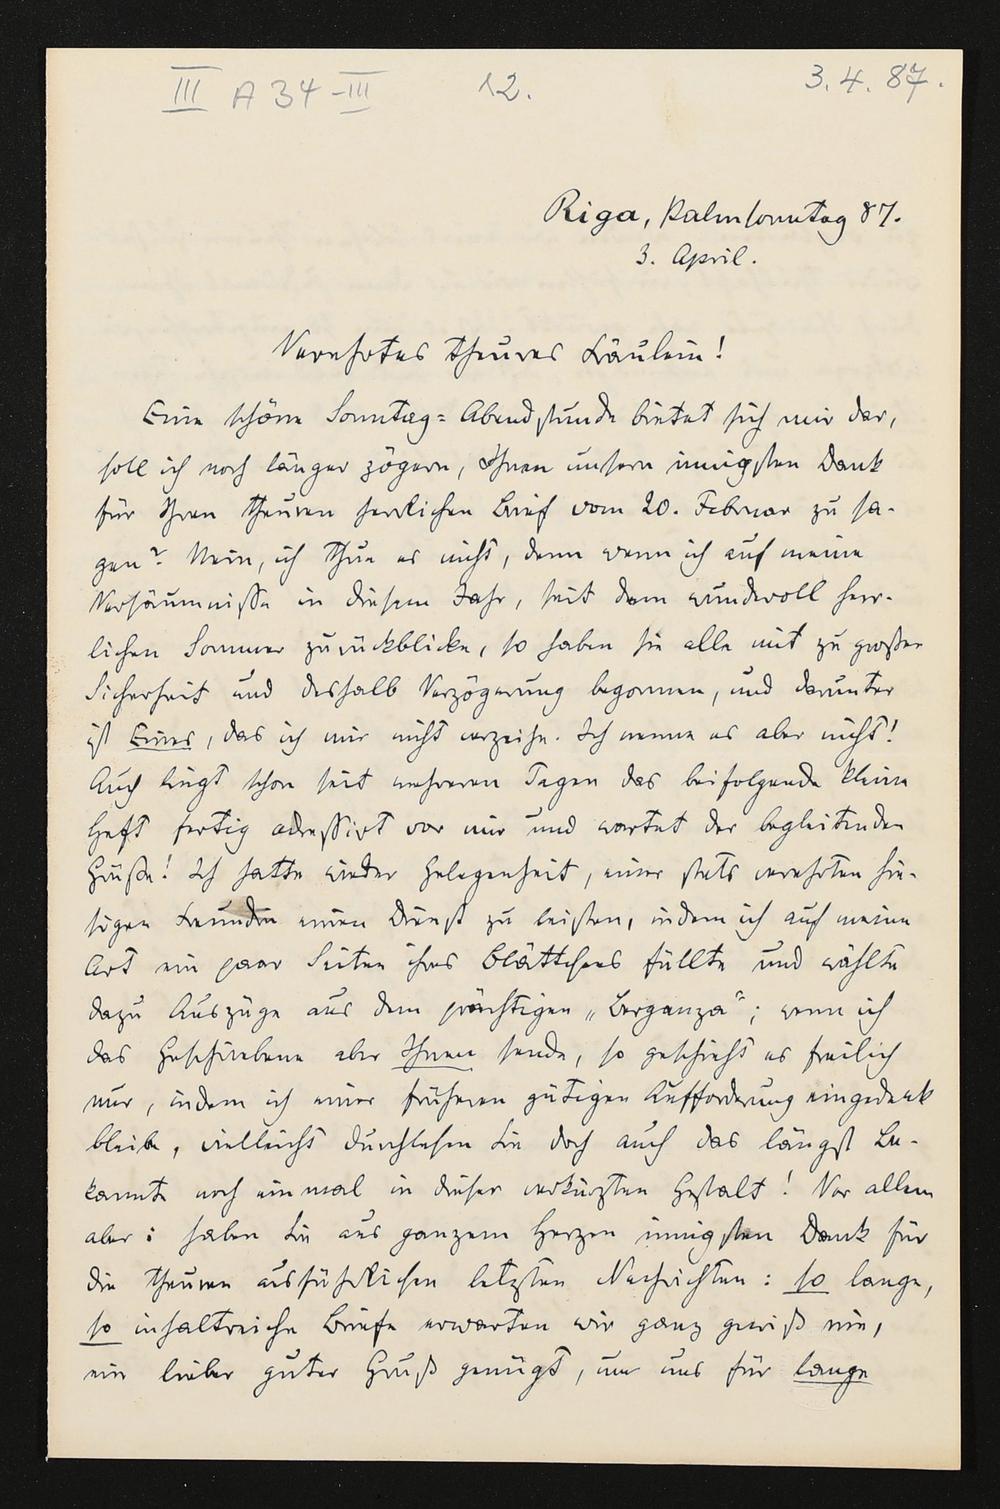 III A 34-III 12. 3.4.87.
Riga, Palmsonntag 87.
3. April.
Verehrtes theures Fräulein!
Eine schöne Sonntag=Abendstunde bietet sich mir dar,
soll ich noch länger zögern, Ihnen unsern innigsten Dank
für Ihren theuren herrlichen Brief vom 20. Februar zu sa-
gen? Nein, ich thue es nicht, denn wenn ich auf meine
Versäumnisse in diesem Jahr, seit dem wundervoll herr-
lichen Sommer zurückblicke, so haben sie alle mit zu großer
Sicherheit und deshalb Verzögerung begonnen, und darunter
ist Eines, das ich mir nicht verzeihe. Ich nenne es aber nicht!
Auch liegt schon seit mehreren Tagen das beifolgende kleine
Heft fertig adressirt vor mir und wartet der begleitenden
Grüße! Ich hatte wieder Gelegenheit, einer stets verehrten hie-
sigen Freundin einen Dienst zu leisten, indem ich auf meine
Art ein paar Seiten ihres Blättchens füllte und wählte
dazu Auszüge aus dem prächtigen „Berganza"; wenn ich
das Geschriebene aber Ihnen sende, so geschieht es freilich
nur, indem ich einer früheren gütigen Aufforderung eingedenk
bleibe, vielleicht durchlesen Sie doch auch das längst Be-
kannte noch einmal in dieser verkürzten Gestalt! Vor allem
aber: haben Sie aus ganzem Herzen innigsten Dank für
die theuren ausführlichen letzten Nachrichten: so lange,
so inhaltreiche Briefe erwarten wir ganz gewiß nie,
ein lieber guter Gruß genügt, um uns für lange